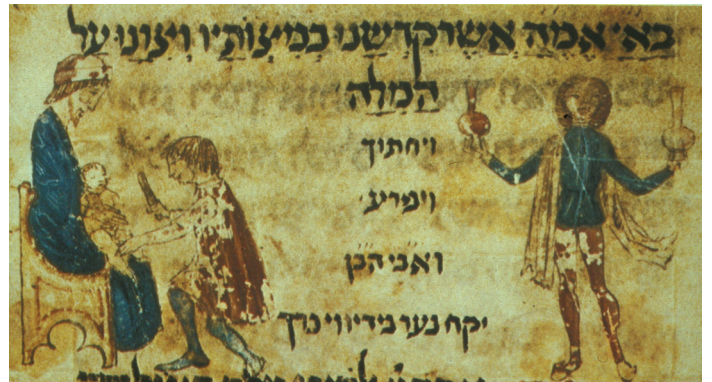 בא״י אמה אשר קדשנו במיצותיו ויצונו על
המלה
ויחתיך
ויפריע׳
ואבי הבן
יקח נער מדיו